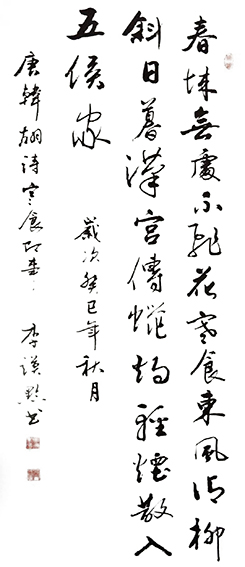 春城無處不飛花寒食東風御柳
斜日暮漢宮傳蠟燭輕煙散入
五侯家
歲次癸巳年秋月
唐韓翃詩寒食 李 書